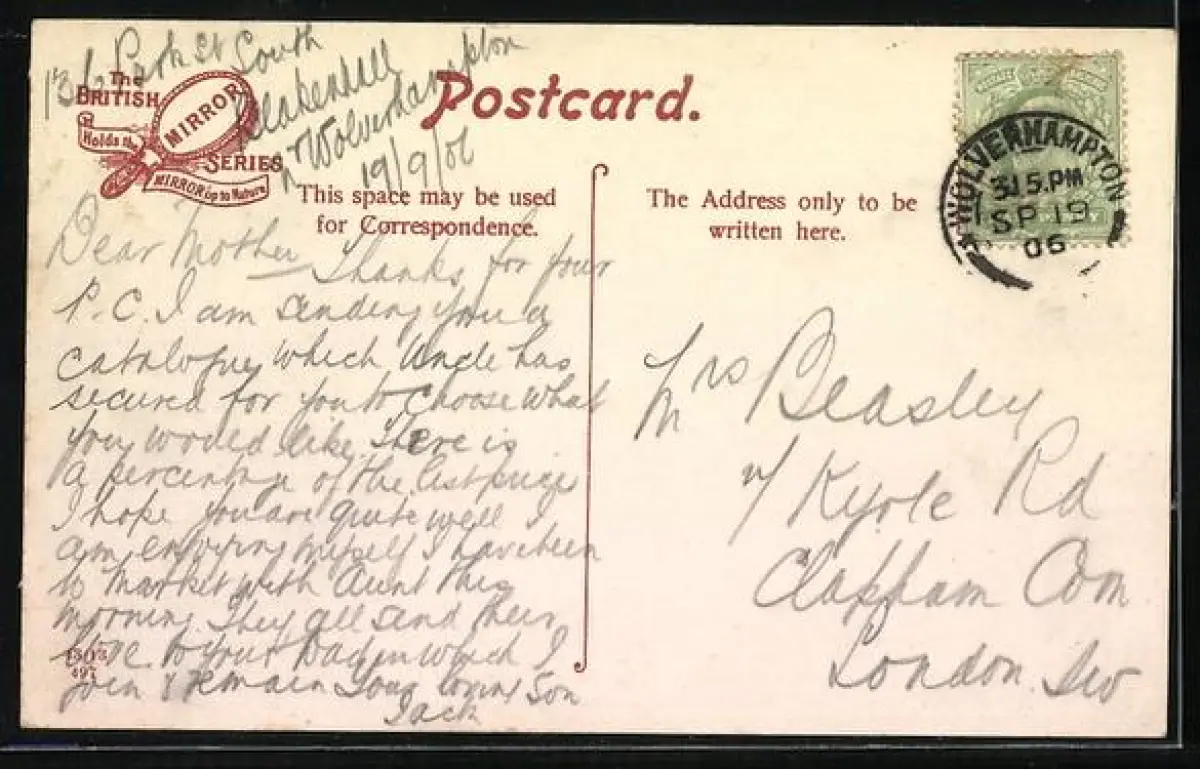 Park St South
Blakenhall
nr Wolverhampton
19/9/06
The
BRITISH
MIRROR
Holds the
SERIES
MIRROR up to Nature
Postcard.
This space may be used
for Correspondence.
The Address only to be
written here.
WOLVERHAMPTON
3.15.PM
SP 19
06
Dear Mother Thanks for your
P.C. I am sending you a
catalogue which Uncle has
secured for you to choose what
you would like. There is
a percentage of the list price
I hope you are quite well I
am enjoying myself I have been
to market with Aunt this
morning They all send their
love to you & Dad in which I
join & remain Your loving Son
Jack
1513
497
Mrs Beasley
7 Kyrle Rd
Clapham Com
London. SW